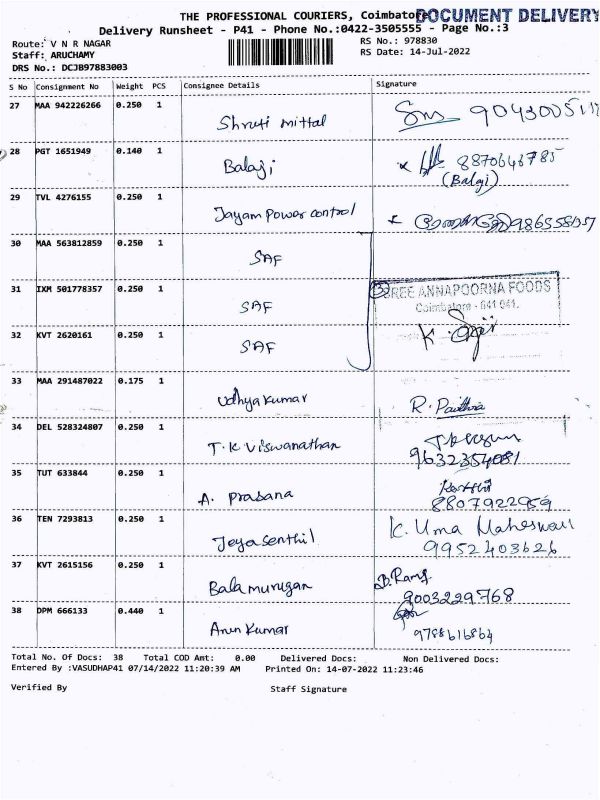 THE PROFESSIONAL COURIERS, Coimbatore
DOCUMENT DELIVERY
Delivery Runsheet - P41 - Phone No.:0422-3505555 - Page No.:3
Route: V N R NAGAR
RS No.: 978830
Staff: ARUCHAMY
RS Date: 14-Jul-2022
DRS No.: DCJB97883003
S No Consignment No Weight PCS Consignee Details Signature
27 MAA 942226266 0.250 1 Shruti mittal
28 PGT 1651949 0.140 1 Balaji 8870643785
(Balaji)
29 TVL 4276155 0.250 1 Jayam Power control
30 MAA 563812859 0.250 1 SAF
31 IXM 501778357 0.250 1 SAF
SREE ANNAPOORNA FOODS
Coimbatore - 641 041.
32 KVT 2620161 0.250 1 SAF
33 MAA 291487022 0.175 1 Udhyakumar R. Pavithra
34 DEL 528324807 0.250 1 T.K Viswanathan
9632354081
35 TUT 633844 0.250 1 A. Prasana
8807922959
36 TEN 7293813 0.250 1 Jeyasenthil K. Uma Maheswari
9952403626
37 KVT 2615156 0.250 1 Balamurugan
9003229768
38 DPM 666133 0.440 1 Arun Kumar
9788616864
Total No. Of Docs: 38 Total COD Amt: 0.00 Delivered Docs: Non Delivered Docs:
Entered By :VASUDHAP41 07/14/2022 11:20:39 AM Printed On: 14-07-2022 11:23:46
Verified By Staff Signature